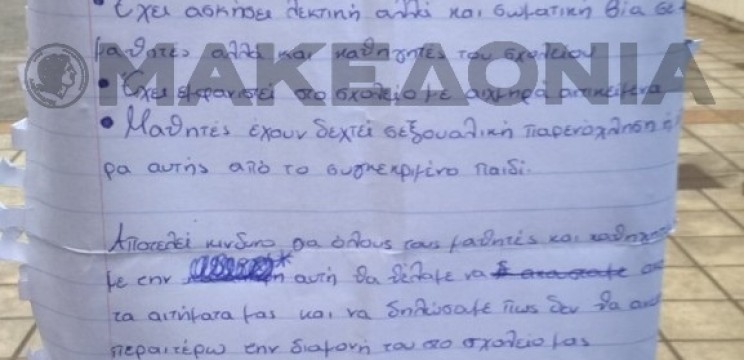 • Έχει ασκήσει λεκτική αλλά και σωματική βία σε
μαθητές αλλά και καθηγητές του σχολείου
ΜΑΚΕΔΟΝΙΑ
• Έχει εμφανιστεί στο σχολείο με αιχμηρά αντικείμενα
• Μαθητές έχουν δεχτεί σεξουαλική παρενόχληση
ρα αυτής από το συγκεκριμένο παιδί.
Αποτελεί κίνδυνο για όλους τους μαθητές και καθηγητ
με την * αυτή θα θέλαμε να
τα αιτήματα μας και να δηλώσαμε πως δεν θα ανε
περαιτέρω την διαμονή του στο σχολείο μας